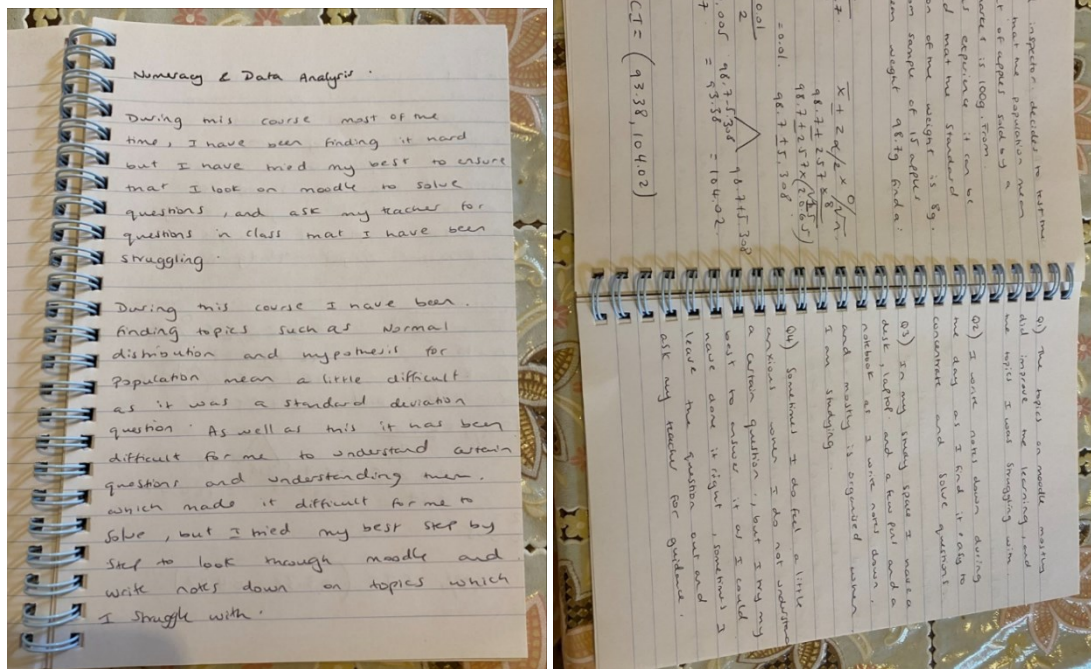 Numeracy & Data Analysis.
During this course most of the
time, I have been finding it hard
but I have tried my best to ensure
that I look on moodle to solve
questions, and ask my teacher for
questions in class that I have been
struggling.
During this course I have been.
finding topics such as Normal
distribution and hypothesis for
population mean a little difficult
as it was a standard deviation
question. As well as this it has been
difficult for me to understand certain
questions and understanding them.
which made it difficult for me to
solve, but I tried my best step by
step to look through moodle and
write notes down on topics which
I struggle with.
inspector. decides to test the
that the population mean
of apples sold by a
is 100g. From
experience it can be
that the standard
of the weight is 8g.
sample of 15 apples
weight 98.7g find a.
98.7 + 5.308
98.7 - 5.308 98.7 + 5.308
= 93.38 = 104.02
CI = (93.38, 104.02)
Q1) The topics on moodle mostly
did improve the learning, and
the topics I was struggling with.
Q2) I write notes down during
the day as I find it easy to
concentrate and solve questions.
Q3) In my study space I have a
desk, laptop. and a few pens and a
notebook as I write notes down,
and mostly is organised when
I am studying.
Q4) Sometimes I do feel a little
anxious when I do not understand
a certain question, but I try my
best to answer it as I could
have done it right, sometimes I
leave the question out and
ask my teacher for guidance.